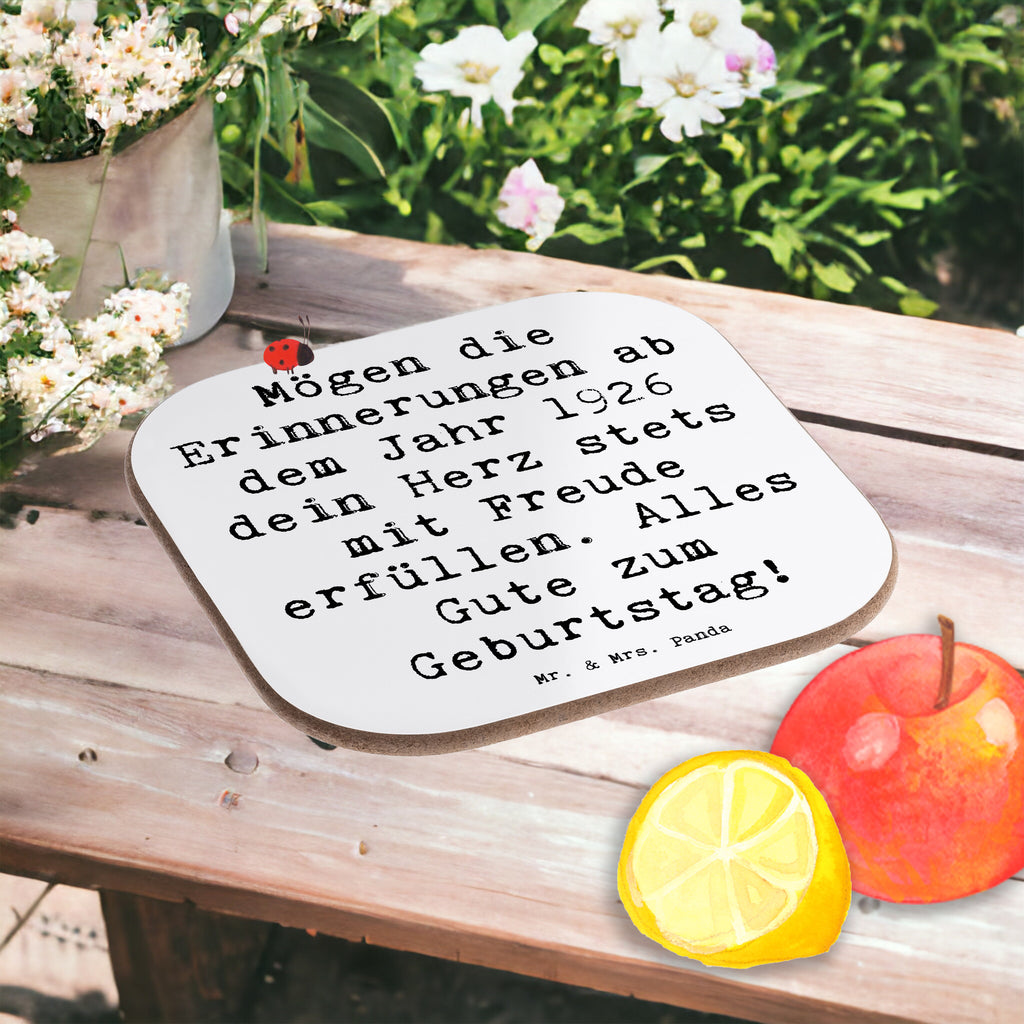 Mögen die
Erinnerungen ab
dem Jahr 1926
dein Herz stets
mit Freude
erfüllen. Alles
Gute zum
Geburtstag!
Mr. & Mrs. Panda